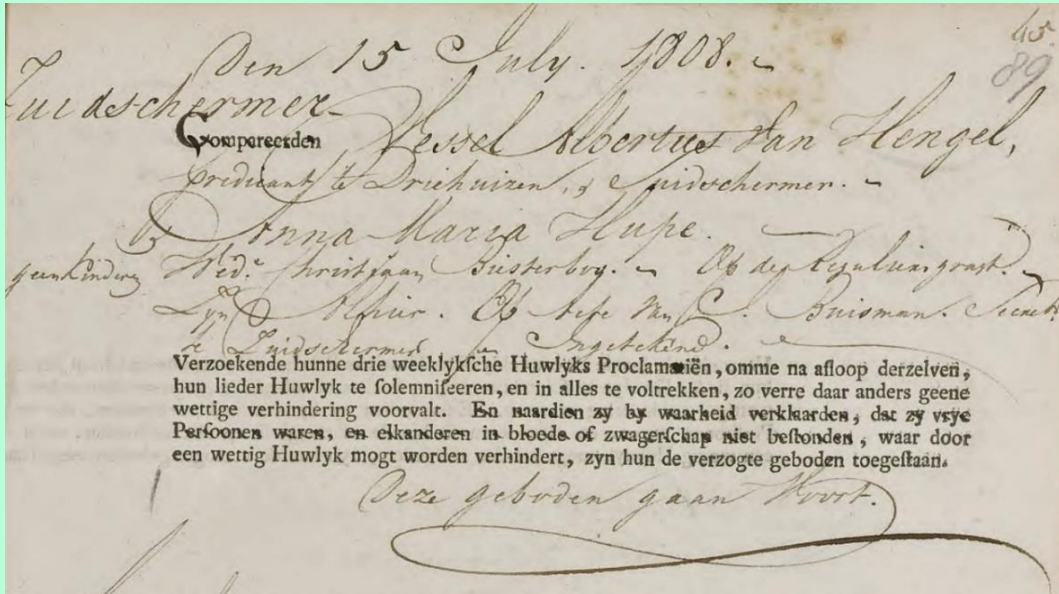 45
89
Den 15 July. 1808.
Zuidschermer
Compareerden Wessel Albertus Van Hengel,
predicant te Driehuizen, & Zuidschermer.
&
Anna Maria Hupe.
geen kinderen Wede. Christiaan Op de Reguliersgragt.
Op acte van C. Buisman. Secret:
te Zuidschermer Ingetekend.
Verzoekende hunne drie weeklykſche Huwlyks Proclamatiën, omme na afloop derzelven,
hun lieder Huwlyk te ſolemniſeeren, en in alles te voltrekken, zo verre daar anders geene
wettige verhindering voorvalt. En naardien zy by waarheid verklaarden, dat zy vrye
Perſoonen waren, en elkanderen in bloede of zwagerſchap niet beſtonden, waar door
een wettig Huwlyk mogt worden verhindert, zyn hun de verzogte geboden toegeſtaan.
Deze geboden gaan Voort.